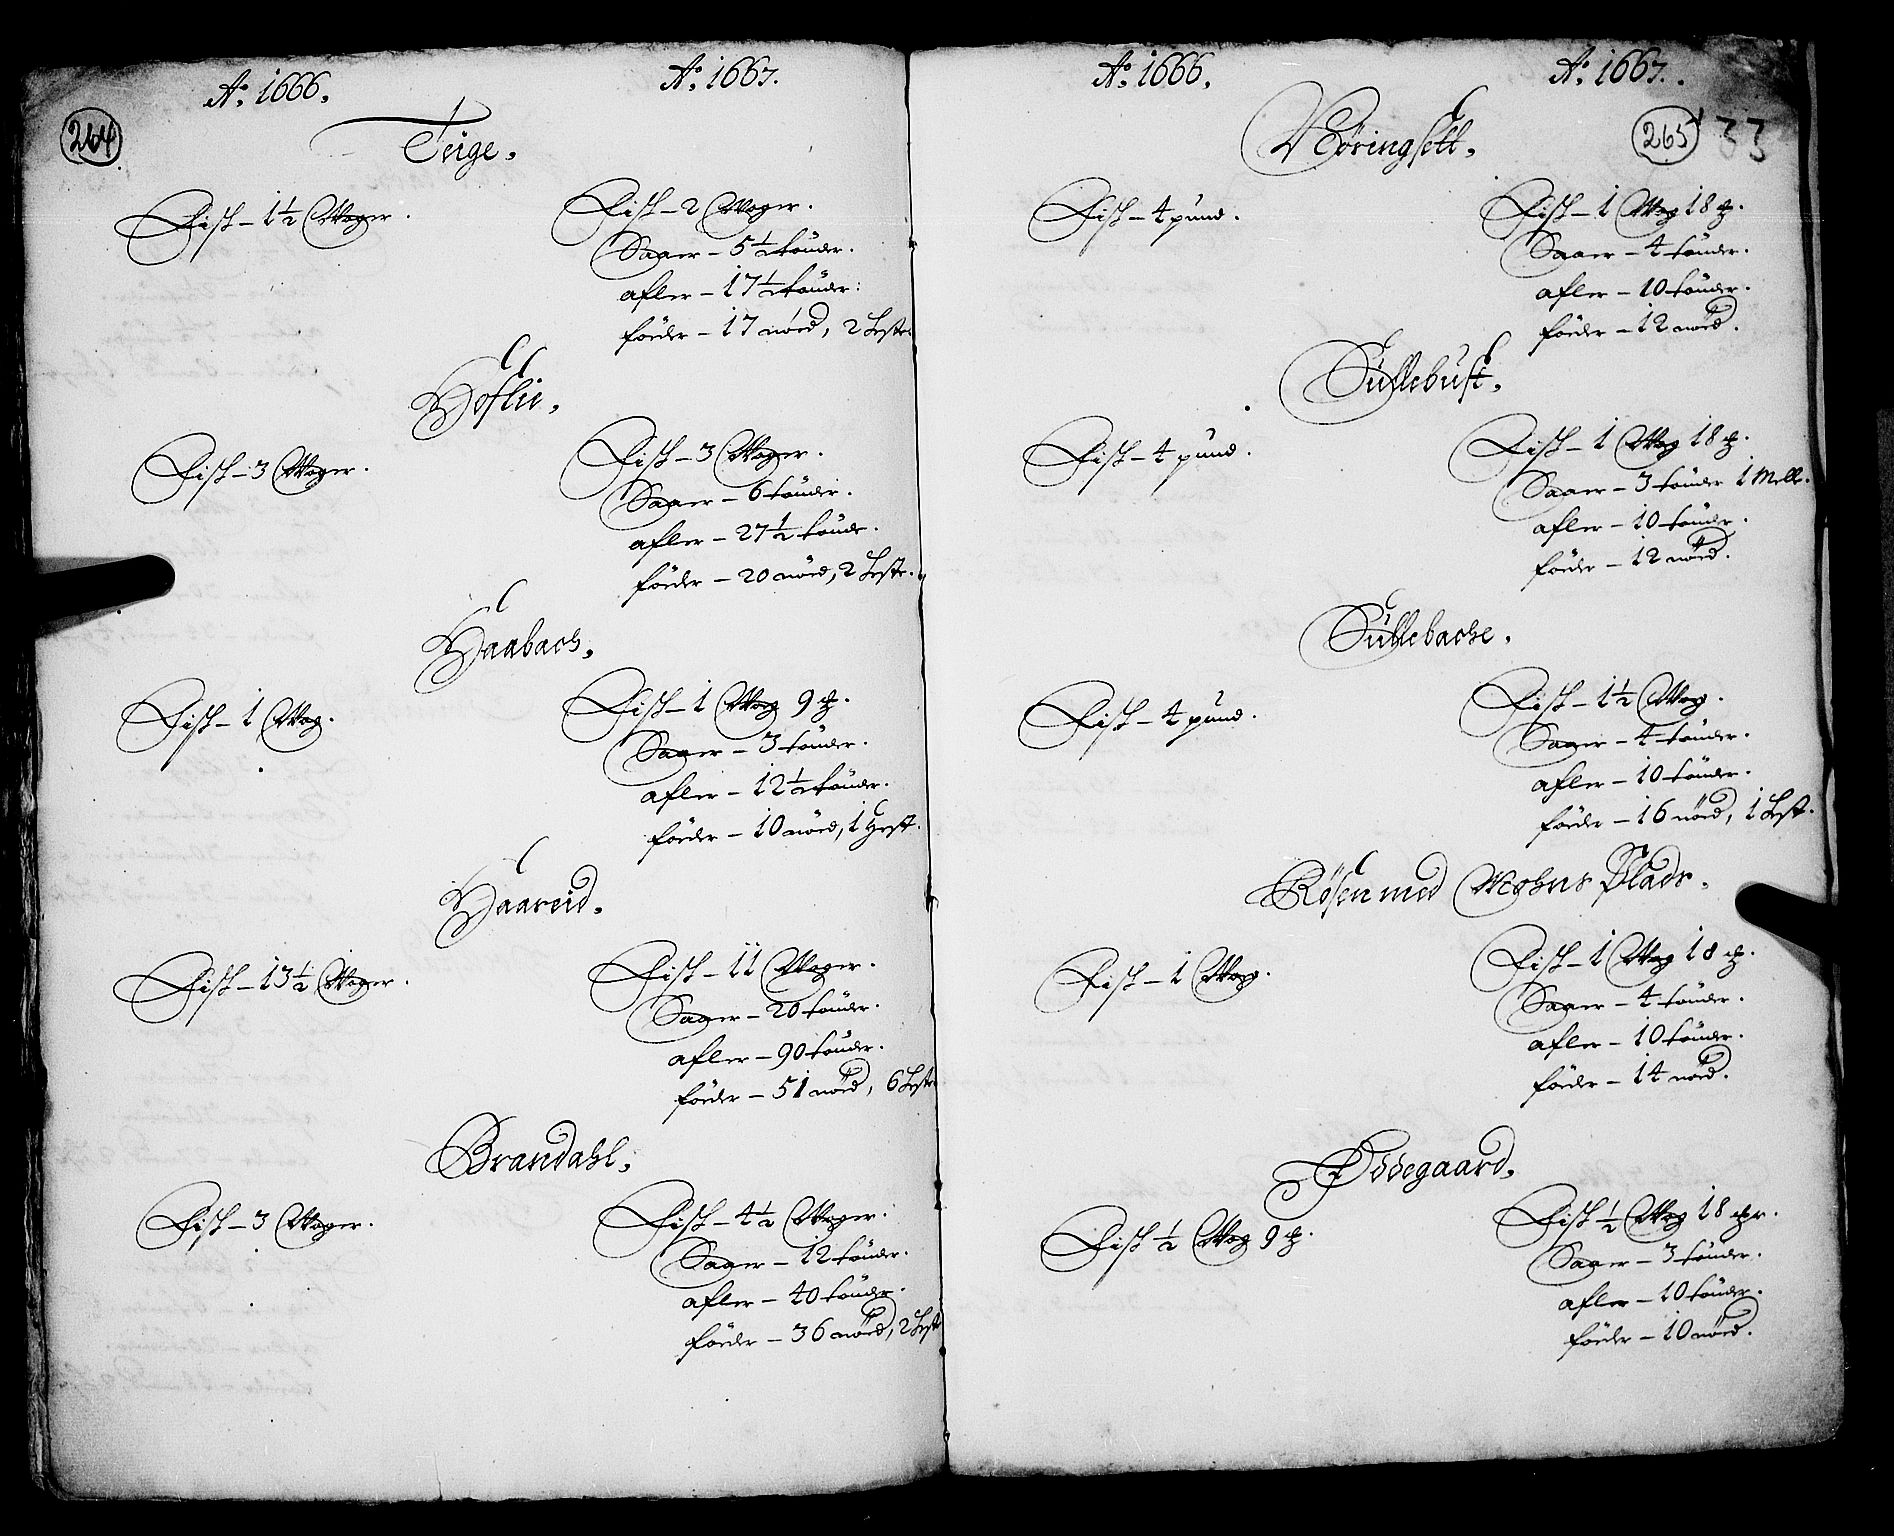 264
Aº. 1666.
Aº. 1667.
Teige.
Fisk – 1½ Woger.
Fisk – 2 Woger.
Saaer – 5½ tönder.
afler – 17½ tönder:
föeder – 17 nöed, 2 Heste.
Hoflie.
Fisk – 3 Woger.
Fisk – 3 Woger.
Saaer – 6 tönder.
afler – 27½ tönder.
föeder – 20 nöed, 2 Heste.
Haabach.
Fisk – 1 Wog.
Fisk – 1 Wog 9 ℔.
Saaer – 3 tönder.
afler – 12½ tönder.
föeder – 10 nöed, 1 Hest.
Haareid.
Fisk – 13½ Woger.
Fisk – 11 Woger.
Saaer – 20 tönder.
afler – 90 tönder.
föeder – 51 nöed, 6 Heste
Brandahl.
Fisk – 3 Woger.
Fisk – 4½ Woger.
Saaer – 12 tönder.
afler – 40 tönder.
föeder – 36 nöed, 2 Hest
Aº. 1666.
Aº. 1667.
265
33
Nöringsett.
Fisk – 4 pund.
Fisk – 1 Wog 18 ℔.
Saaer – 4 tönder.
afler – 10 tönder.
föeder – 12 nöed.
Süllebust.
Fisk – 4 pund.
Fisk – 1 Wog 18 ℔.
Saaer – 3 tönder 1 Melle.
afler – 10 tönder.
föeder – 12 nöed.
Süllebache.
Fisk – 4 pund.
Fisk – 1½ Wog.
Saaer – 4 tönder.
afler – 10 tönder.
föeder – 16 nöed, 1 Hest.
Rösen med Mohns Plads.
Fisk – 1 Wog.
Fisk – 1 Wog 18 ℔.
Saaer – 4 tönder.
afler – 10 tönder.
föeder – 14 nöed.
Ödegaard.
Fisk ½ Wog 9 ℔.
Fisk ½ Wog 18 ℔r.
Saaer – 3 tönder.
afler – 10 tönder.
föeder – 10 nöed.